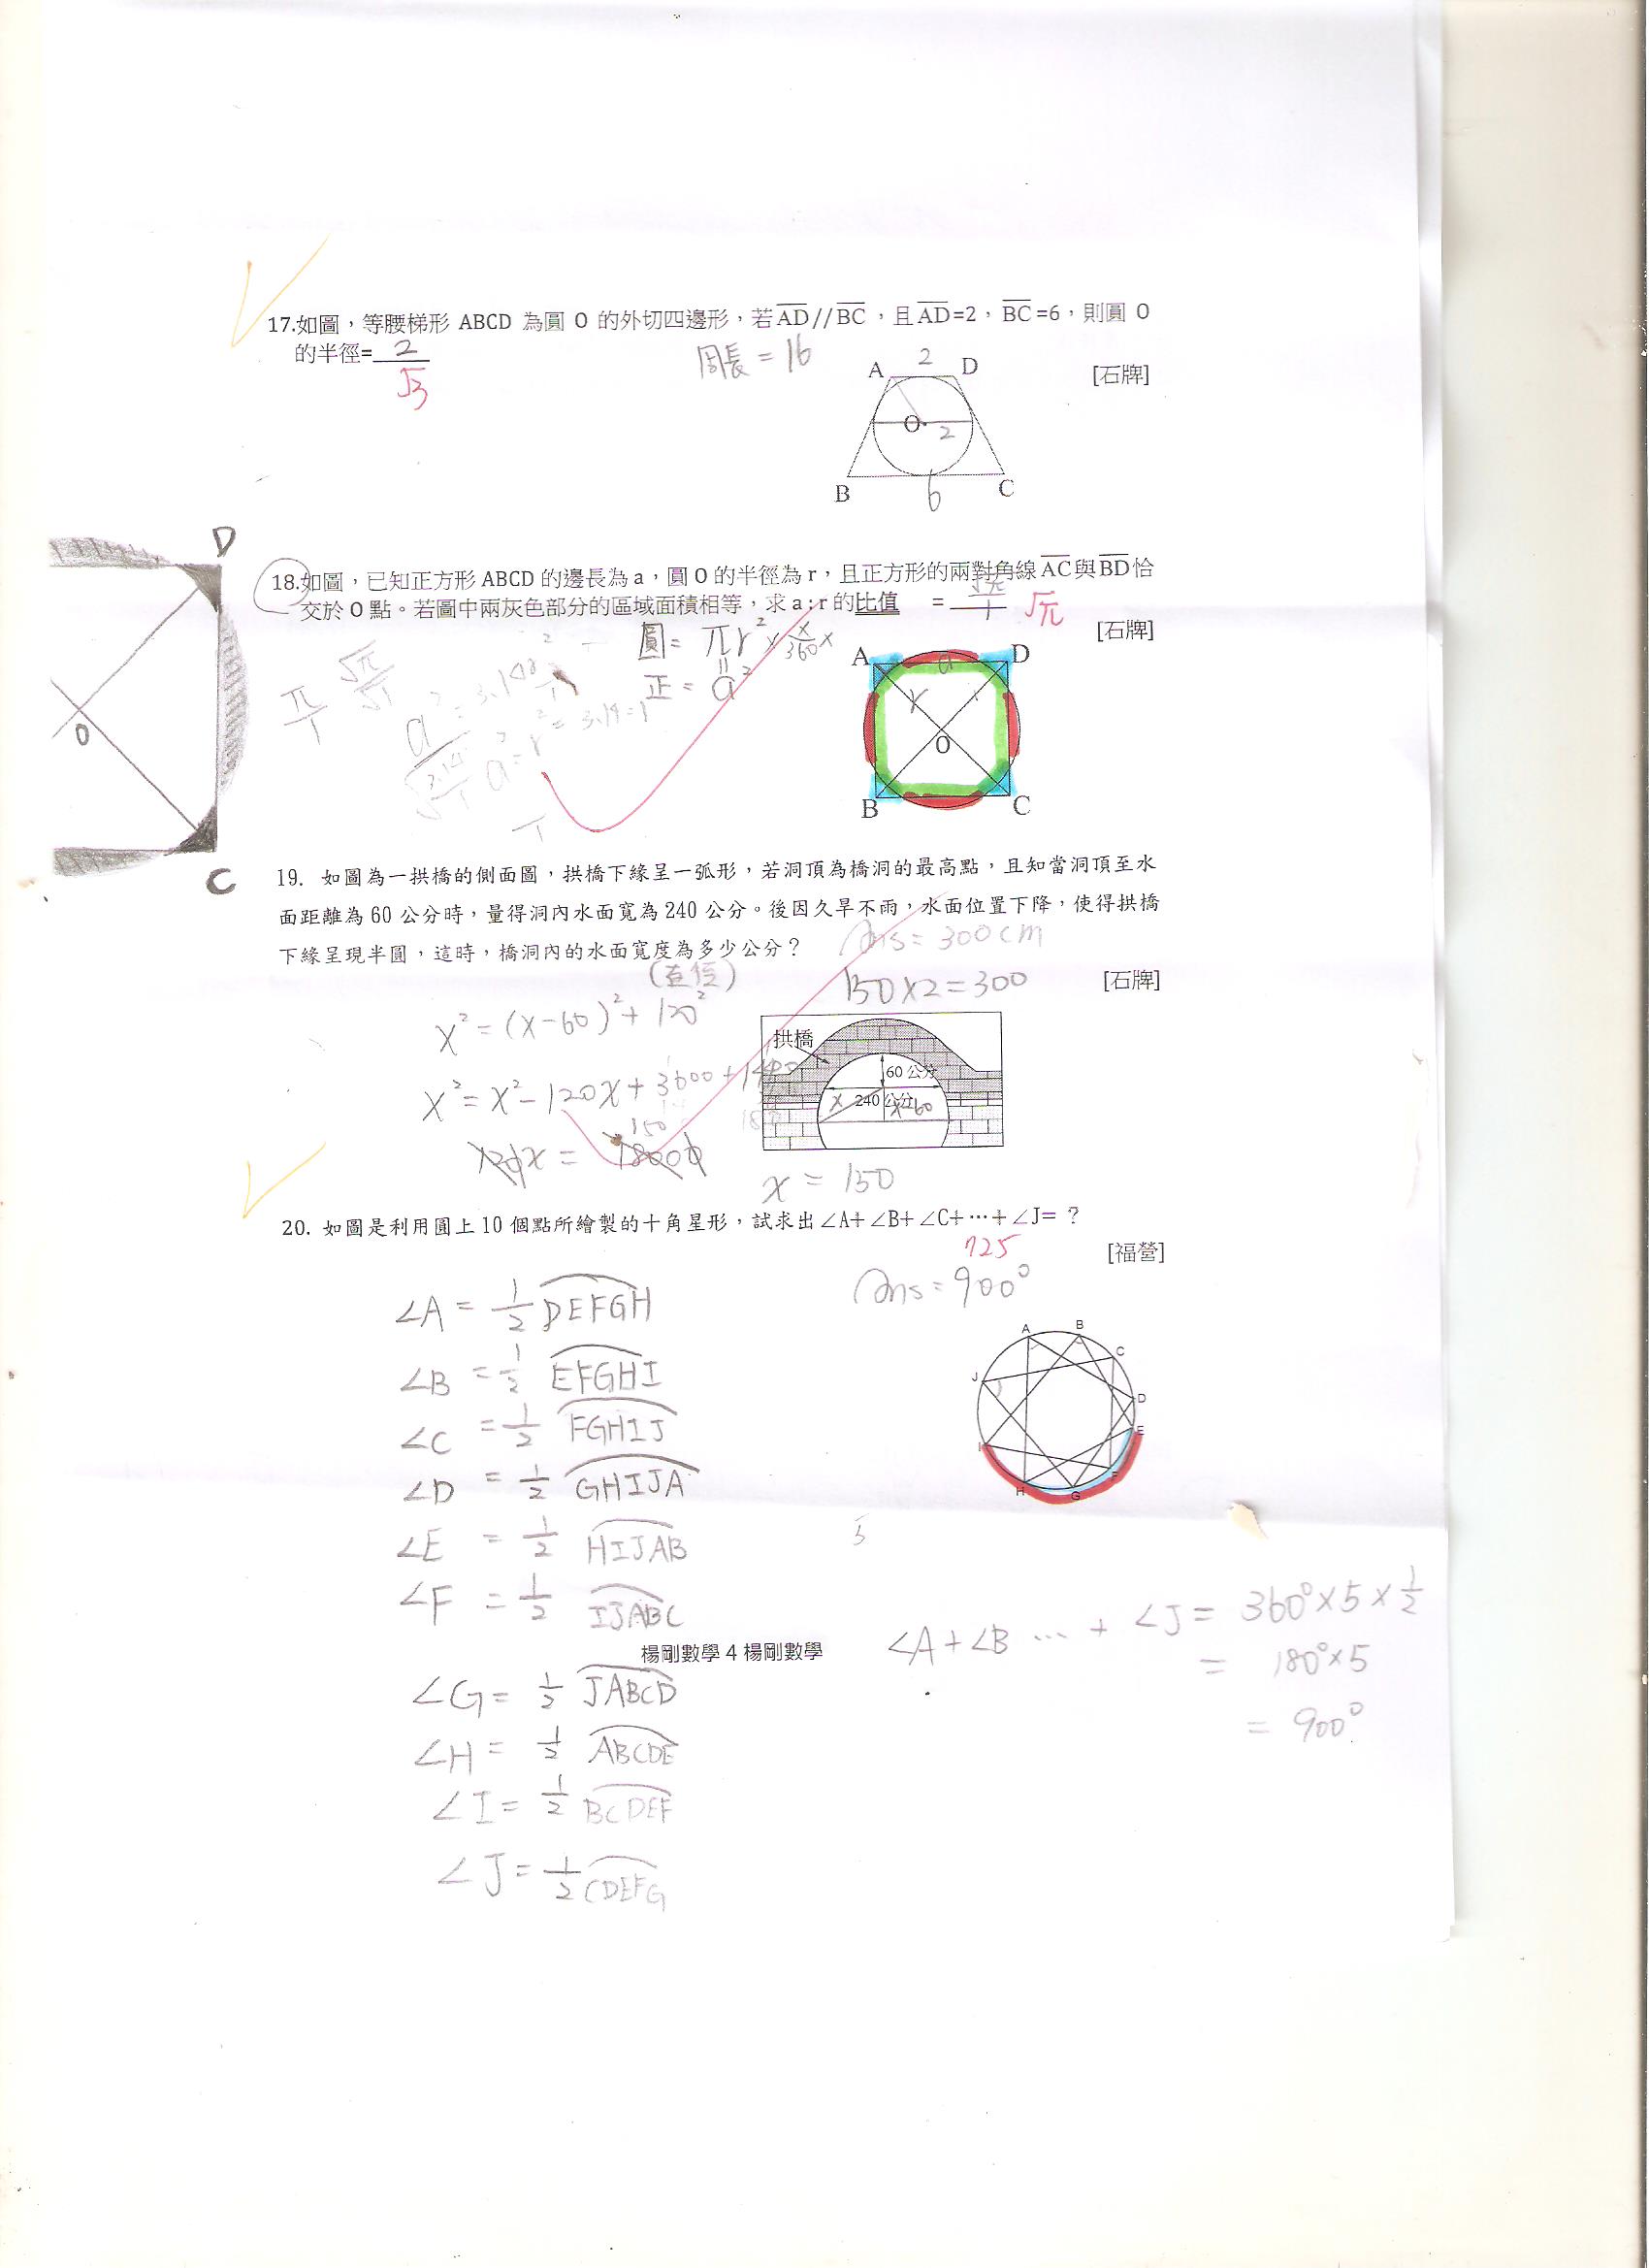 17.如圖，等腰梯形 ABCD 為圓 O 的外切四邊形，若AD//BC，且AD=2，BC=6，則圓 O
的半徑=2
√3
周長 = 16
[石牌]
A 2 D
O 2
B 6 C
D
O
C
18.如圖，已知正方形 ABCD 的邊長為 a，圓 O 的半徑為 r，且正方形的兩對角線AC與BD恰
交於 O 點。若圖中兩灰色部分的區域面積相等，求 a:r 的比值 = √π/1 √π
[石牌]
圓= πr² × x/360 ×
正 = a²
π/1 √π/√1
A a D
r
O
B C
19. 如圖為一拱橋的側面圖，拱橋下緣呈一弧形，若洞頂為橋洞的最高點，且知當洞頂至水
面距離為 60 公分時，量得洞內水面寬為 240 公分。後因久旱不雨，水面位置下降，使得拱橋
下緣呈現半圓，這時，橋洞內的水面寬度為多少公分？
(直徑)
Ans = 300cm
150×2=300
[石牌]
x² = (x-60)² + 120²
x² = x² - 120x + 3600 + 14400
120x = 18000
150
拱橋
60 公分
240 公分
x
x-60
x = 150
20. 如圖是利用圓上 10 個點所繪製的十角星形，試求出∠A+∠B+∠C+…+∠J= ？
725
[福營]
Ans = 900°
∠A = 1/2 DEFGH
∠B = 1/2 EFGHI
∠C = 1/2 FGHIJ
∠D = 1/2 GHIJA
∠E = 1/2 HIJAB
∠F = 1/2 IJABC
A B C D E F G H I J
5
∠A+∠B … + ∠J = 360°×5×1/2
= 180°×5
= 900°
楊剛數學 4 楊剛數學
∠G = 1/2 JABCD
∠H = 1/2 ABCDE
∠I = 1/2 BCDEF
∠J = 1/2 CDEFG